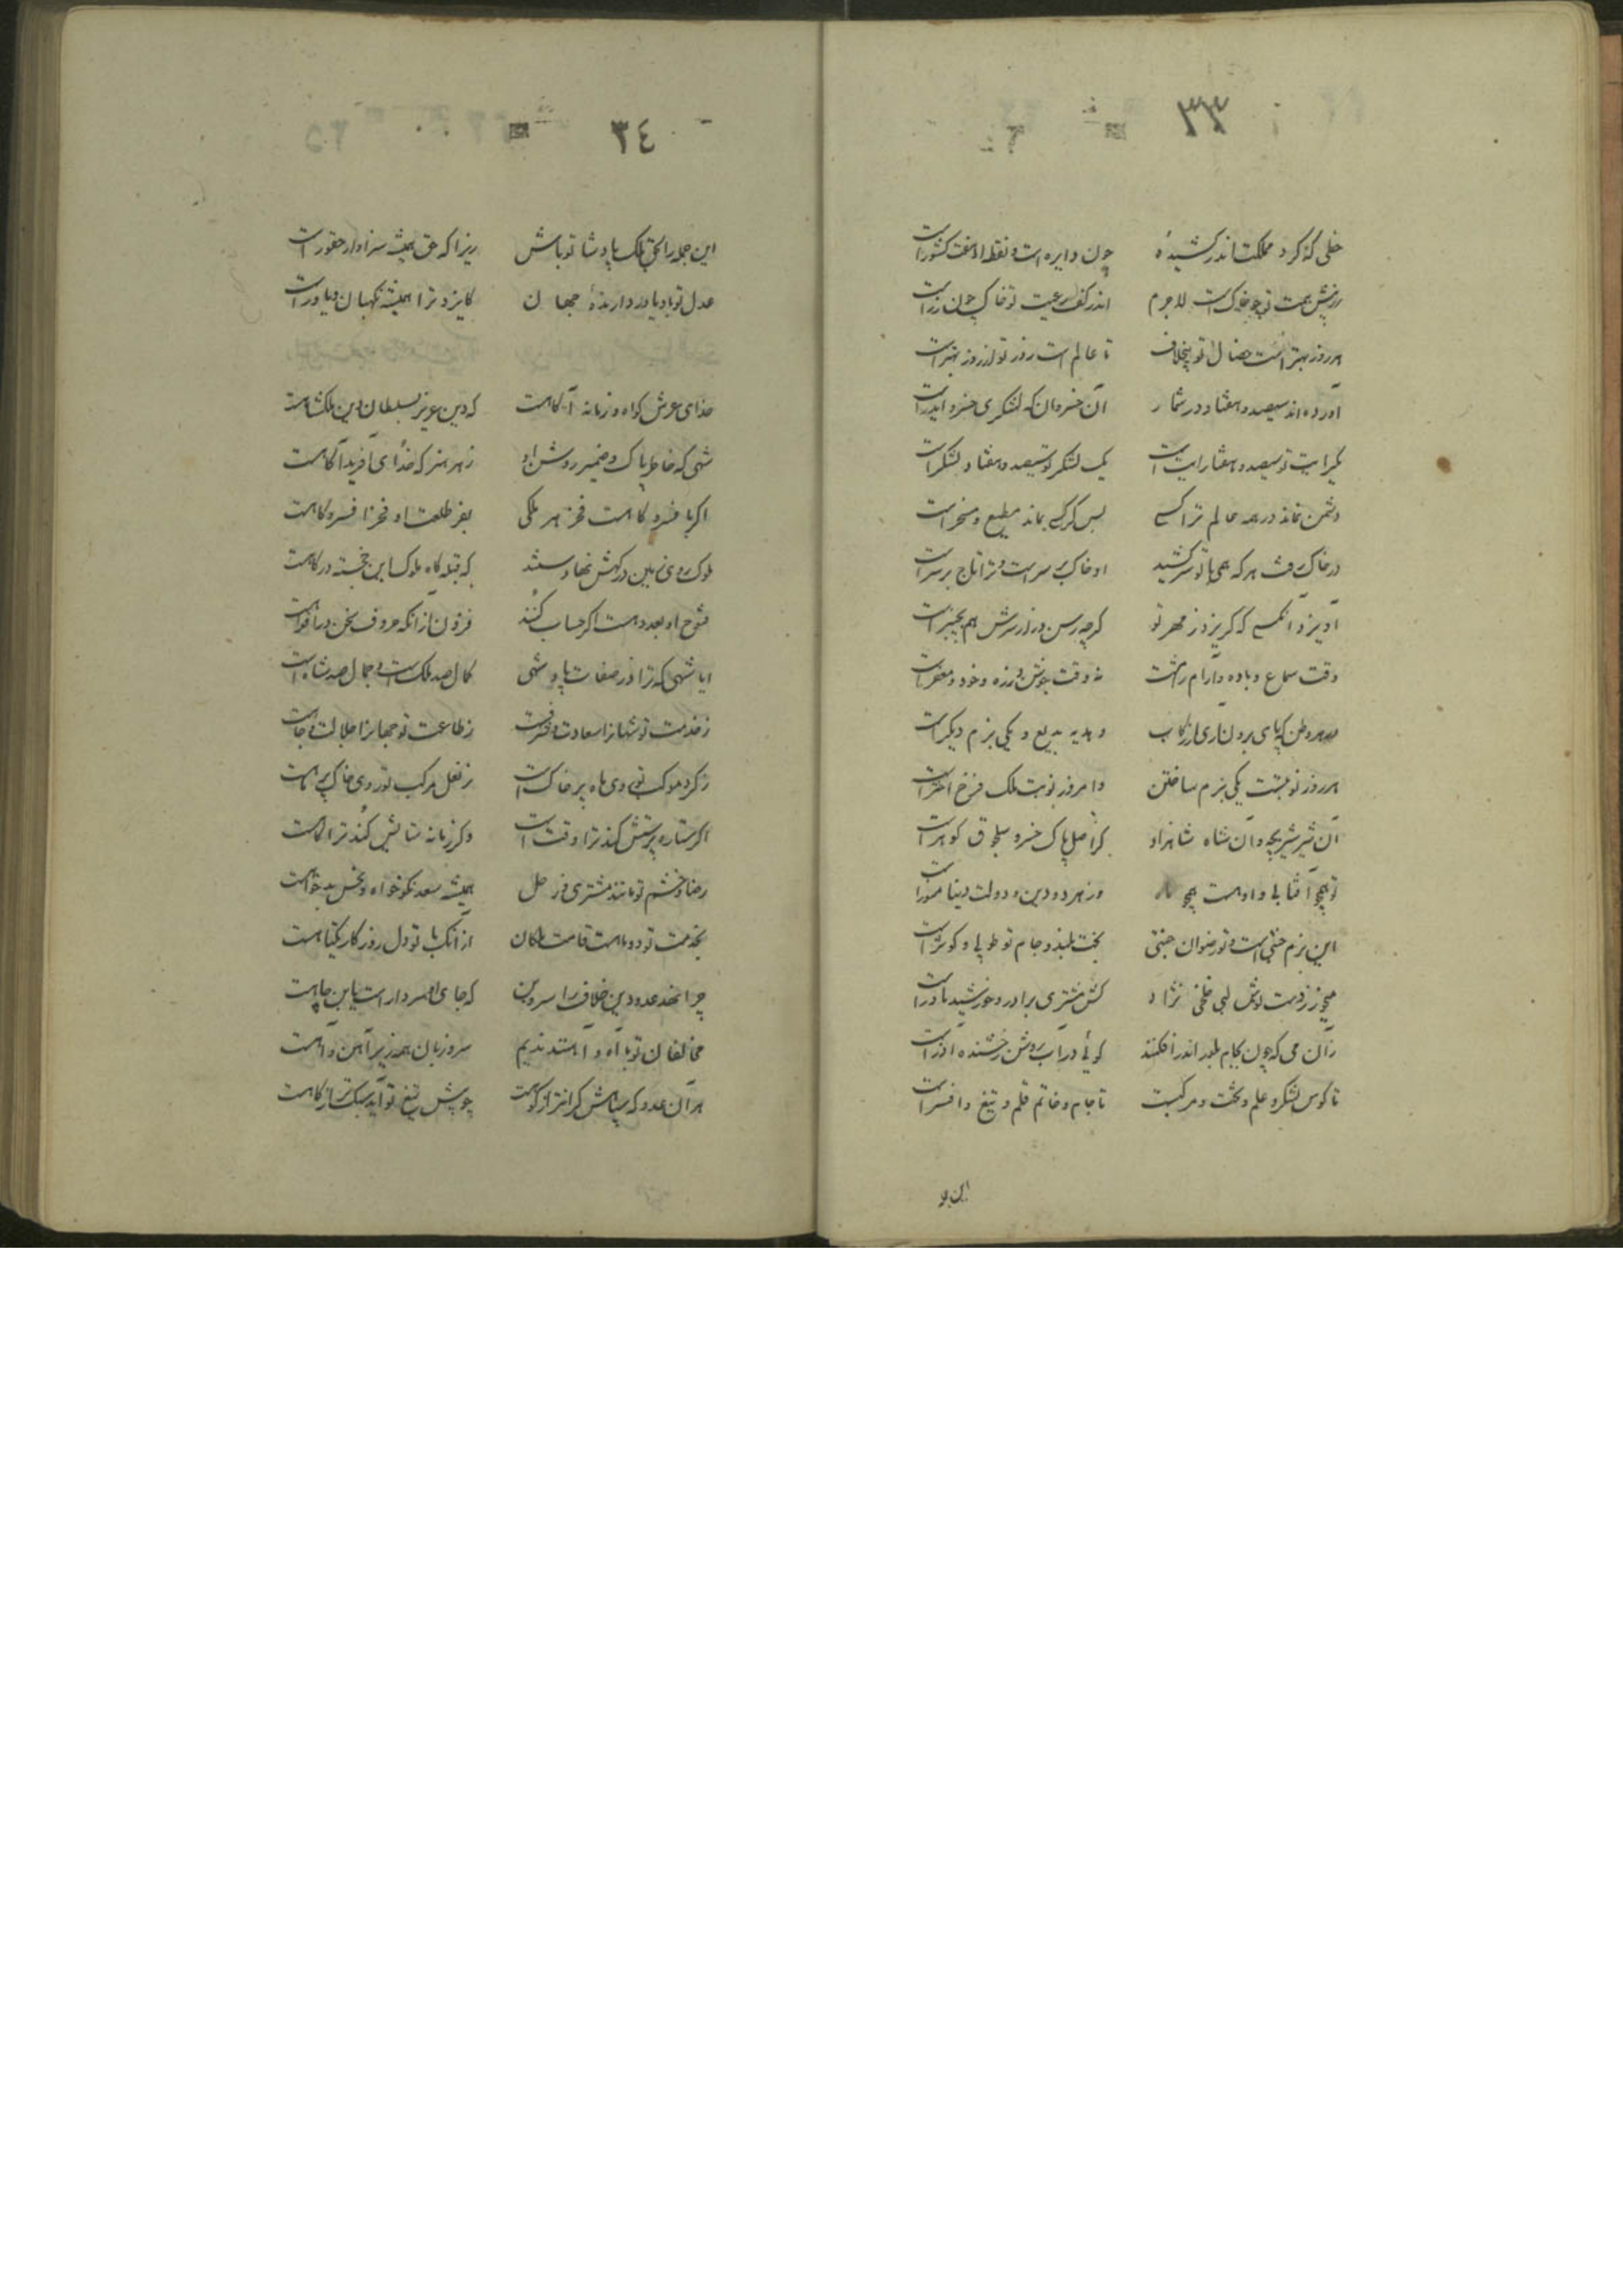 ٣٣
خطی که کرد مملکت اندر کشیدهٔ چون دایره است و نقطه او هفت کشور است
زر پیش همت تو چو خاک است لاجرم اندر کف رعیت تو خاک چون زر است
هر روز بهتر است خصال تو بیخلاف تا عالم است روز تو از روز بهتر است
آورده‌اند سیصد و هفتاد در شمار آن خسروان که لشکری خسرو ایدر است
یک رایت تو سیصد و هفتاد رایت است یک لشکر تو سیصد و هفتاد لشکر است
دشمن نماند در همه عالم ترا کسی پس گر کسی بماند مطیع و مسخر است
در خاک رفت هر که همی با تو سر کشید او خاک بر سر است و ترا تاج بر سر است
آویزد آنکسی که گریزد ز مهر تو گر چه رسن دراز سرش هم بچنبر است
وقت سماع و باده و آرام رامش است نه وقت جوشن و زره و خود و مغفر است
و هدیه بدیع و یکی بزم دیگر است
هر روز نوبتست یکی بزم ساختن وامروز نوبت ملک فرخ اختر است
آن شیر شیر بچه و آن شاه شاهزاد کز اصل پاک خسرو سلجوق گوهر است
تو همچو آفتابی و او هست همچو ماه وز هر دو دین و دولت دنیا منور است
این بزم جنتی است و تو رضوان جنتی بخت بلند و جام تو طوبی و کوثر است
می خور ز دست نوش لبی خلخی نژاد کش مشتری برادر و خورشید مادر است
زان می که چون بجام بلور اندر افکنند گوئی در آب روشن رخشنده آذر است
تا کوس لشکر و علم و تخت و مرکبست تا جام و خاتم قلم و تیغ و افسر است
این جمله
٣٤
این جمله را بحق ملک پادشا تو باش زیرا که حق همیشه سزاوار حقور است
عدل تو باد یاور دارندهٔ جهان کایزد ترا همیشه نگهبان و یاور است
خدای عرش گواه و زمانه آگاهست که دین عزیز بسلطان دین ملکشاهست
شهی که خاطر پاک و ضمیر روشن او ز هر هنر که خدای آفرید آگاهست
اگر بافسر و گاهست فخر هر ملکی بفر طلعت او فخر افسر و گاهست
ملوک روی زمین در کفش نهادستند که قبله گاه ملوک این خجسته درگاهست
فتوح او بعدد هست اگر حساب کنند فزون از آنکه حروف سخن در افواهست
ایا شهی که ترا در صفات پادشهی کمال صد ملک است و جمال صد شاه است
ز خدمت تو شهانرا سعادت و شرفست ز طاعت تو جهانرا جلالت و جاهست
ز گرد موکب تو روی ماه پر خاک است ز نعل مرکب تو روی خاک پر ماهست
اگر ستاره پرستش کند ترا وقت است وگر زمانه ستایش کند ترا گاهست
رضا و خشم تو مانند مشتری و زحل همیشه سعد نکو خواه و نحس بدخواهست
بخدمت تو دوتا هست قامت ملکان از آنکه با تو دل روزگار یکتاهست
چرا نهد عدو دین خلاف را سر و بن که جای او سر دار است یا بن چاهست
مخالفان تو با آه و آهنند ندیم سر و زبان همه زیر آهن و آهست
هر آن عدو که سپاهش گرانتر از کوهست چو پیش تیغ تو آید سبکتر از کاهست